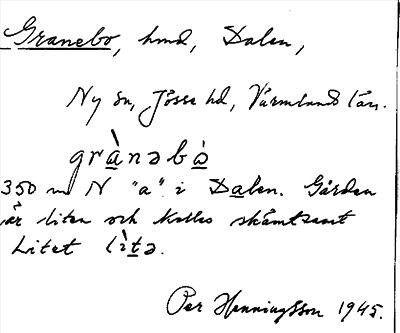 Granebo, hmd, Dalen,
Ny sn, Jösse hd, Värmlands län.
grànəbò̤
350 m N "a" i Dalen. Gården
är liten och kallas skämtsamt
Litet lìtə.
Per Henningsson 1945.